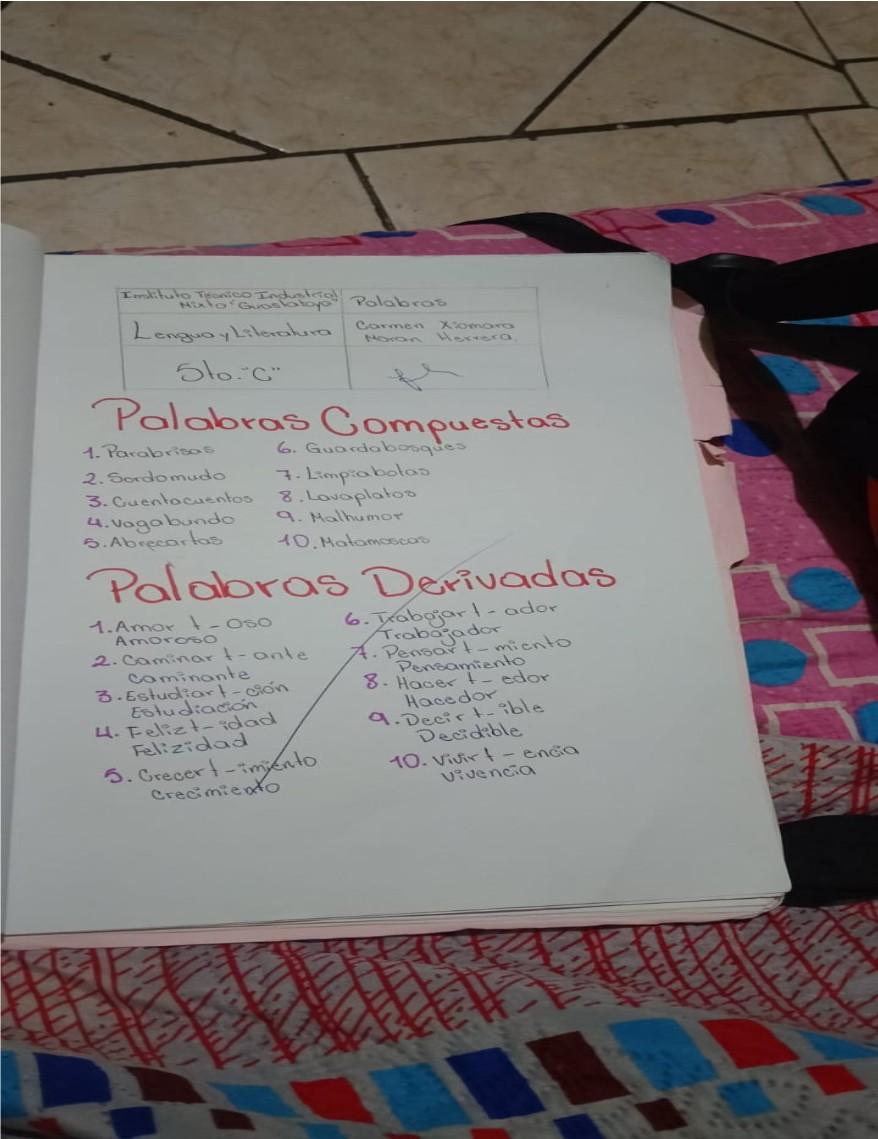 Instituto Técnico Industrial
Mixto "Guastatoya"
Palabras
Lengua y Literatura
Carmen Xiomara
Moran Herrera.
5to. "C"
Palabras Compuestas
1. Parabrisas
2. Sordomudo
3. Cuentacuentos
4. Vagabundo
5. Abrecartas
6. Guardabosques
7. Limpiabotas
8. Lavaplatos
9. Malhumor
10. Matamoscas
Palabras Derivadas
1. Amor + - oso
Amoroso
2. Caminar + - ante
Caminante
3. Estudiar + - ción
Estudiación
4. Feliz + - idad
Felizidad
5. Crecer + - imiento
Crecimiento
6. Trabajar + - ador
Trabajador
7. Pensar + - miento
Pensamiento
8. Hacer + - edor
Hacedor
9. Decir + - ible
Decidible
10. Vivir + - encia
Vivencia